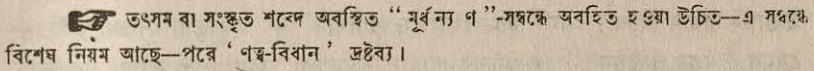 ☞ তৎসম বা সংস্কৃত শব্দে অবস্থিত “মূর্ধন্য ণ”-সম্বন্ধে অবহিত হওয়া উচিত—এ সম্বন্ধে
বিশেষ নিয়ম আছে—পরে ‘ণত্ব-বিধান’ দ্রষ্টব্য।